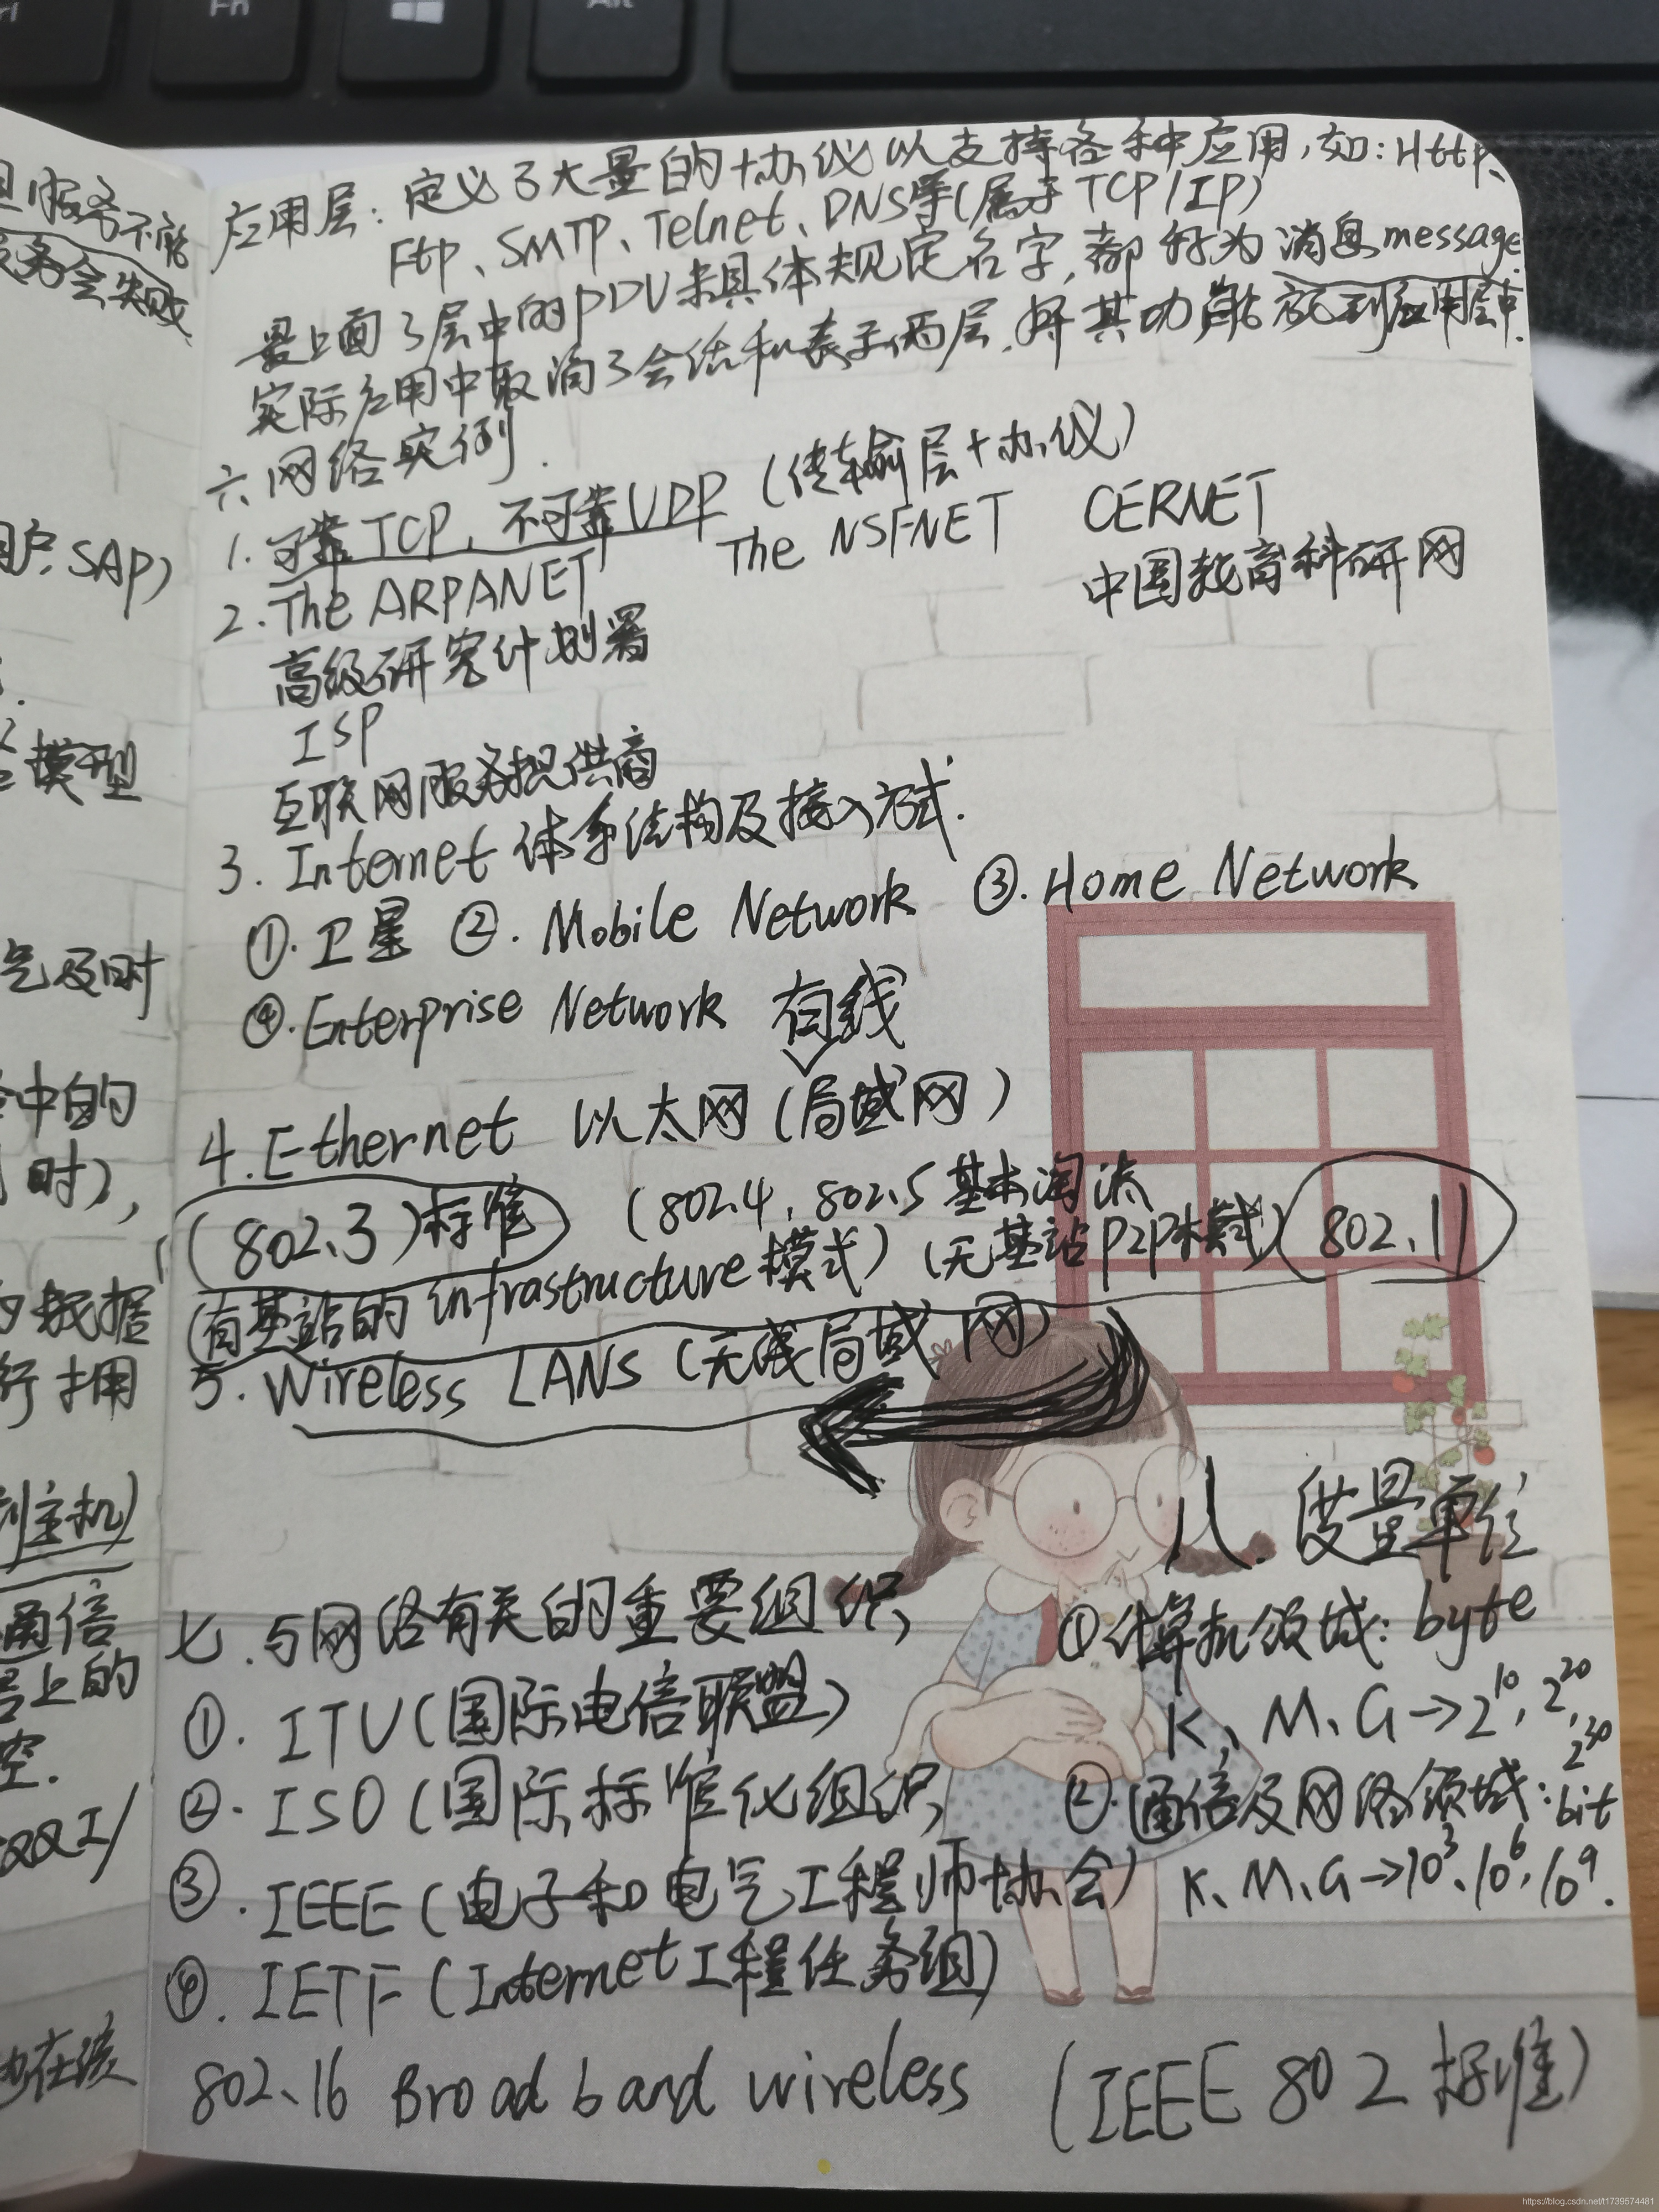 Fn
Alt
应用层: 定义了大量的协议以支持各种应用,如:Http、
Ftp、SMTP、Telnet、DNS等(属于TCP/IP)
最上面3层中的PDU未具体规定名字,都称为消息message.
实际应用中取消了会话和表示两层,将其功能放到应用层中.
六.网络实例.
1.可靠TCP,不可靠UDP(传输层协议)
2.The ARPANET The NSFNET CERNET
高级研究计划署 中国教育科研网
ISP
互联网服务提供商
3. Internet 体系结构及接入方式.
①.卫星 ②. Mobile Network ③.Home Network
④.Enterprise Network 有线
4.Ethernet 以太网(局域网)
(802.3)标准 (802.4, 802.5基本淘汰
(有基站的infrastructure模式)(无基站P2P模式) 802.11
5. Wireless LANs (无线局域网)
七.与网络有关的重要组织
①. ITU(国际电信联盟)
②. ISO(国际标准化组织
③. IEEE(电子和电气工程师协会)
④. IETF(Internet工程任务组)
八.度量单位
①计算机领域: byte
K、M、G→2^10, 2^20,
2^30
②.通信及网络领域:bit
K、M、G→10^3、10^6,10^9.
802.16 Broad band wireless (IEEE 802标准)
服务不能
服务会失败
SAP)
模型
及时
中的
时),
数据
行拥
到主机)
通信
上的
空.
也在该
https://blog.csdn.net/t1739574481